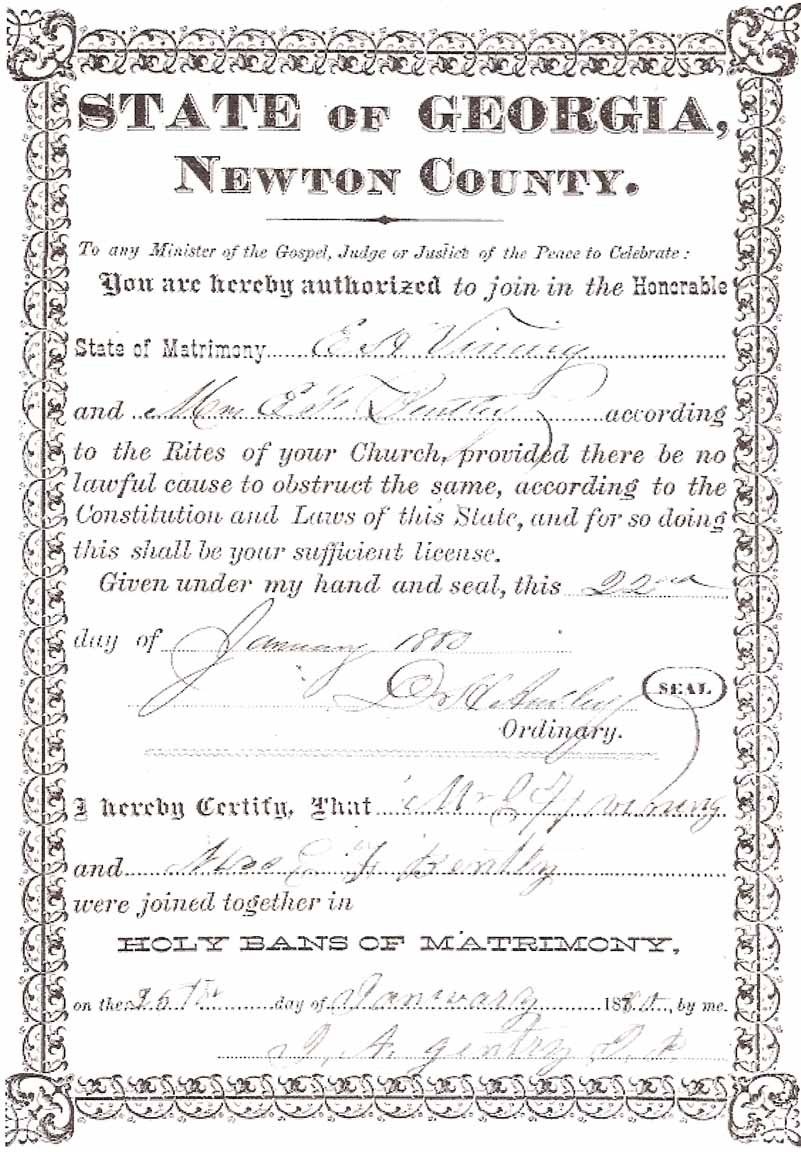 STATE OF GEORGIA,
NEWTON COUNTY.
To any Minister of the Gospel, Judge or Justice of the Peace to Celebrate:
You are hereby authorized to join in the Honorable
State of Matrimony E Vining
and Mrs E F according
to the Rites of your Church, provided there be no
lawful cause to obstruct the same, according to the
Constitution and Laws of this State, and for so doing
this shall be your sufficient license.
Given under my hand and seal, this 22nd
day of January 1880
SEAL
Ordinary.
I hereby Certify, That Mr
and E F Bentley
were joined together in
HOLY BANS OF MATRIMONY,
on the day of January 188 , by me.
A. gentry